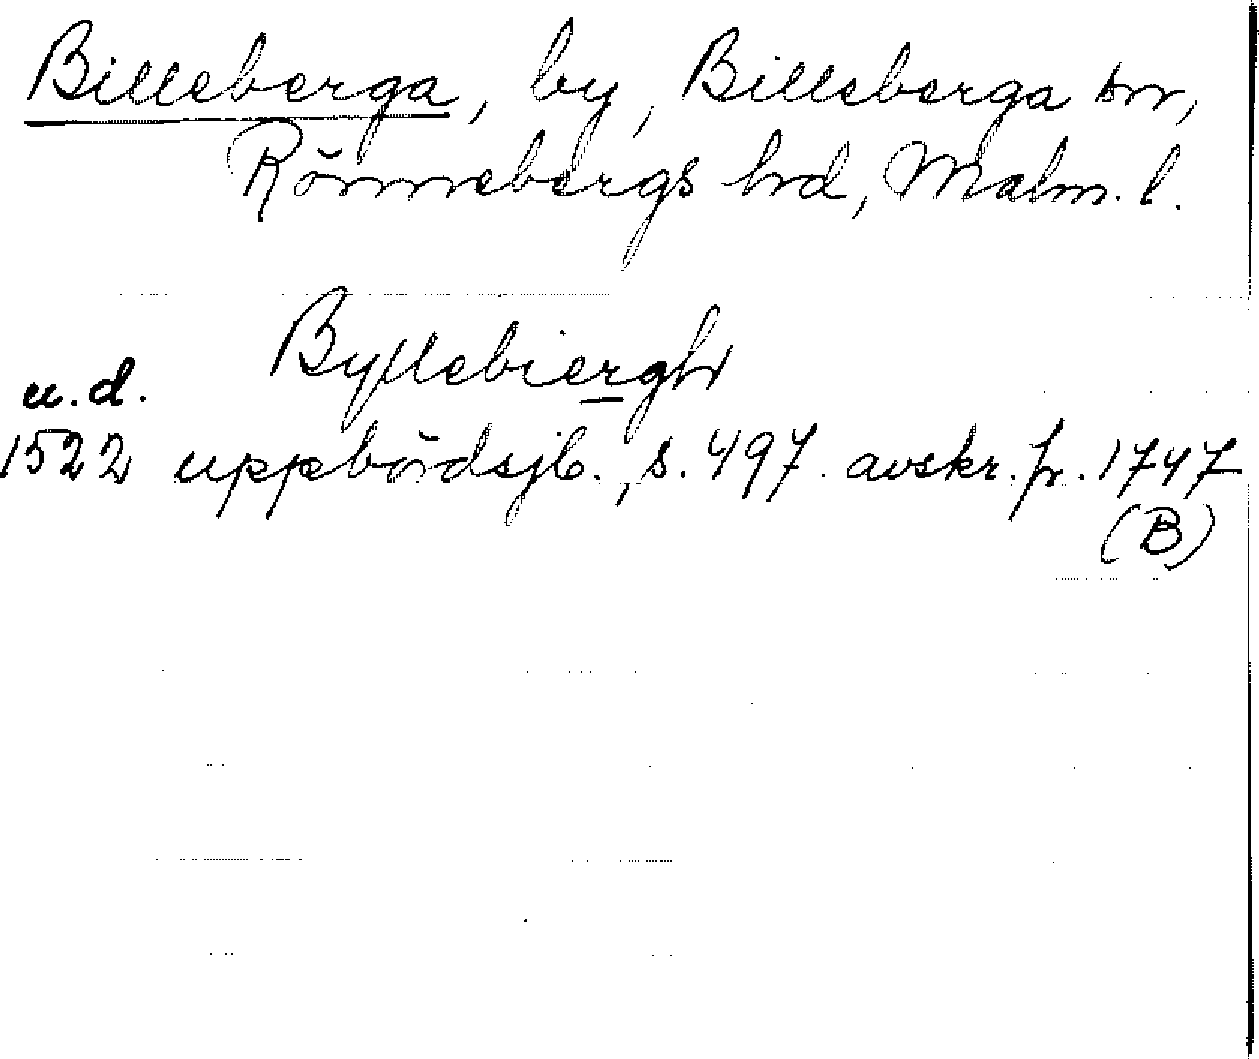 Billeberga, by, Billeberga sn,
Rönnebergs hd, Malm. l.
Byllebiergh
u.d.
1522 uppbördsjb., s. 497. avskr. fr. 1747
(B)